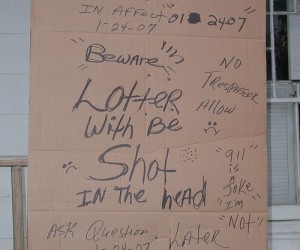 IN AFFECT 01 2407
1-24-07
"Beware"
NO
TRESPASSER
Allow
LOTTER
With Be
Shot
IN THE head
"911
is
A
JOKE
"I'm"
"Not"
ASK Question. LATER
1-24-07